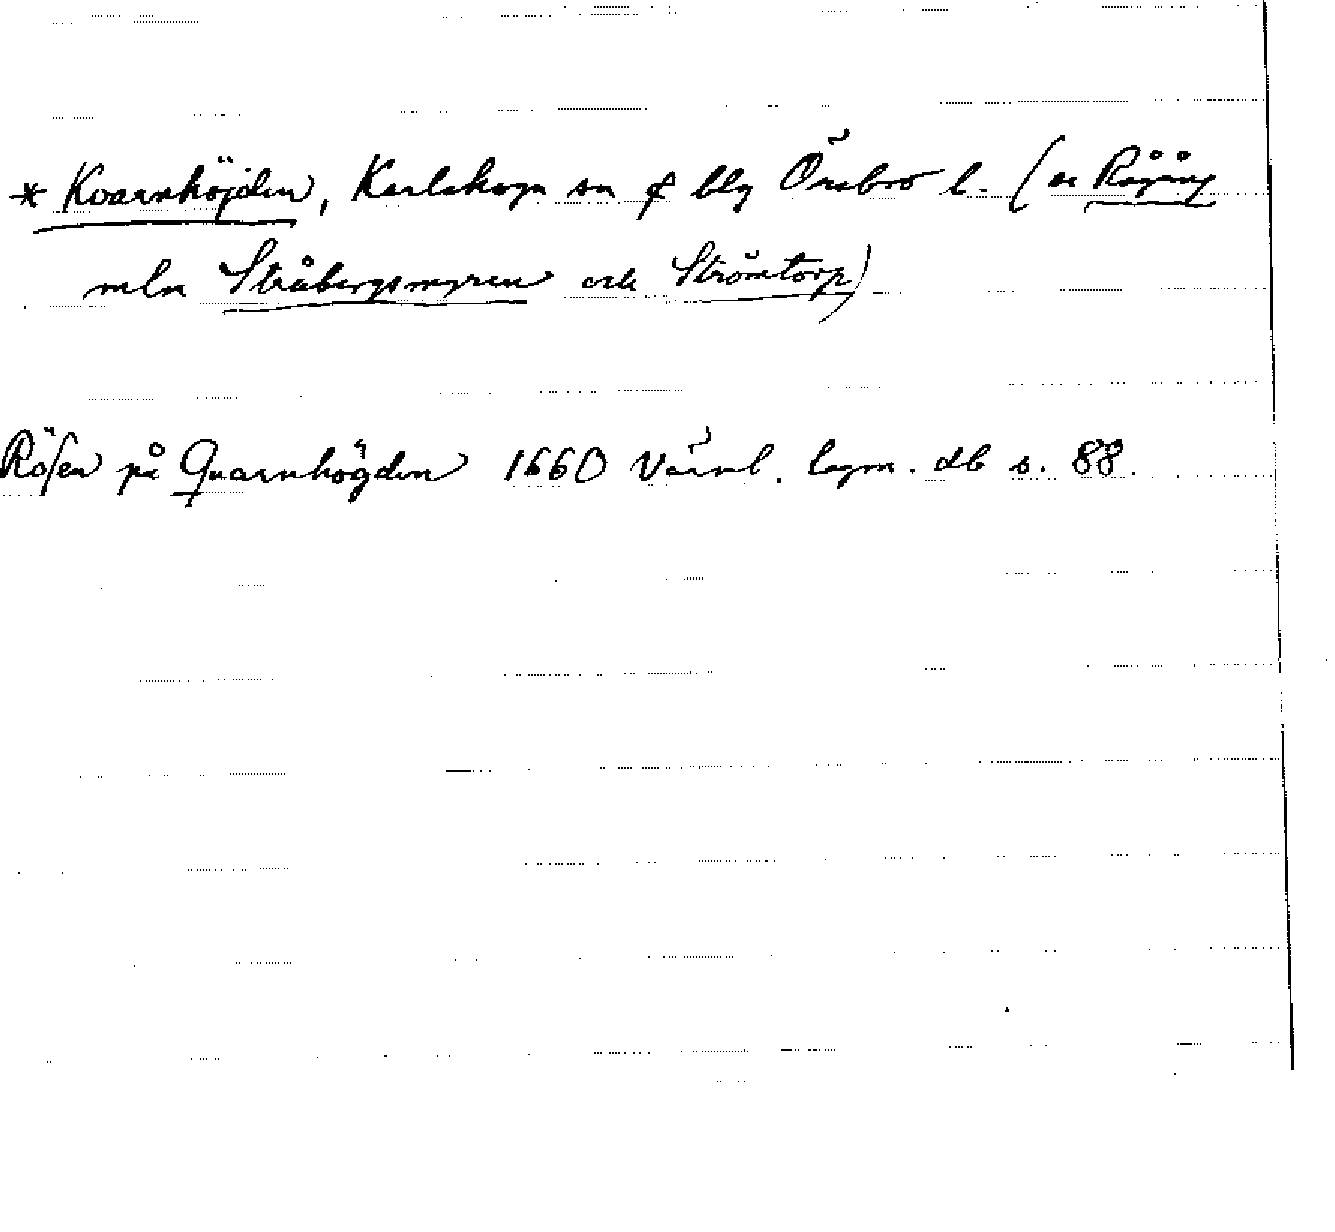 * Kvarnhöjden, Karlskoga sn f blg Örebro l. (se Rågång
mln Stråbergsmyren och Strömtorp)
Rösen på Quarnhögden 1660 Värml. lagm. db s. 88.